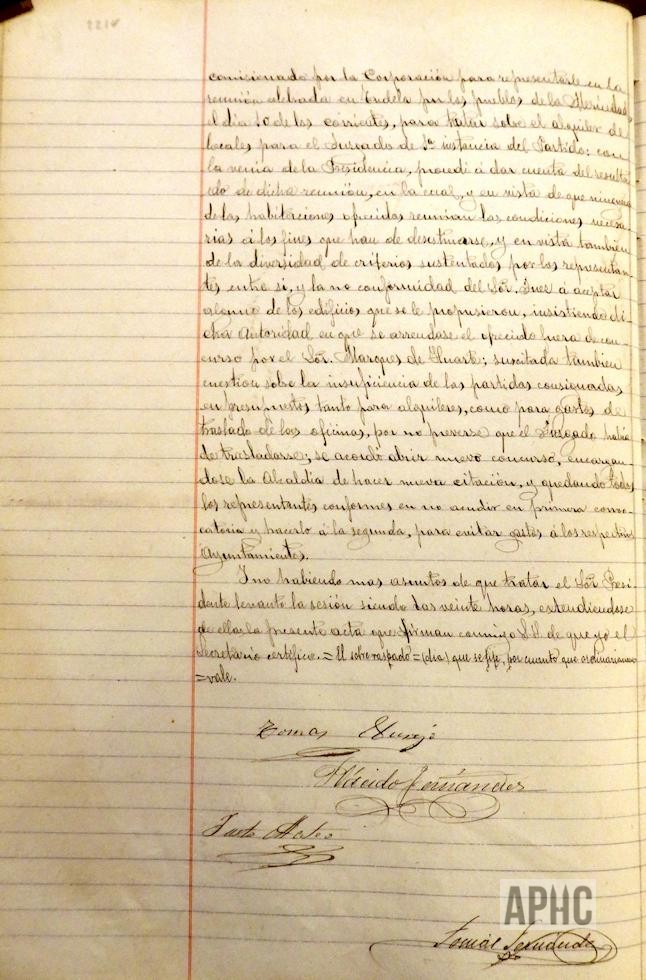 comisionado por la Corporación para representarle en la
reunión celebrada en Tudela por los pueblos de la Merindad,
el dia 10 de los corrientes, para tratar sobre el alquiler de
locales para el Juzgado de 1ª instancia del Partido; con
la venia de la Presidencia, procedí á dar cuenta del resulta
do de dicha reunión, en la cual, y en vista de que ninguna
de las habitaciones ofrecidas reunian las condiciones necesa-
rias á los fines que han de destinarse, y en vista tambien
de la diversidad de criterios sustentados por los representan-
tes entre si, y la no conformidad del Sor. Juez á aceptar
alguno de los edificios que se le propusieron, insistiendo di-
cha Autoridad en que se arrendase el ofrecido fuera de con-
curso por el Sor. Marques de Huarte; suscitada tambien
cuestion sobre la insuficiencia de las partidas consignadas
en presupuestos tanto para alquileres, como para gastos de
traslado de las oficinas, por no preverse que el Juzgado habia
de trasladarse; se acordó abrir nuevo concurso, encargan-
dose la Alcaldia de hacer nueva citación, y quedando todos
los representantes conformes en no acudir en primera convo-
catoria y hacerlo á la segunda, para evitar gastos á los respectivos
Ayuntamientos.
Y no habiendo mas asuntos de que tratar el Sor. Presi-
dente levantó la sesión siendo las veinte horas, extendiendose
de ella la presente acta que firman conmigo S.S. de que yo el
Secretario certifico. = El sobre raspado = (dias) que se fije, por cuanto que
=vale.
Tomas
Plácido Fernández
Justo Mateo
Tomás Fernández
APHC